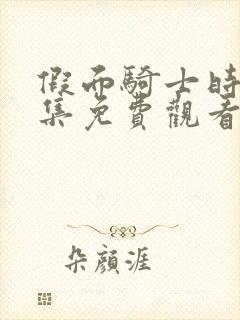 假面騎士時
集免費觀看
朵顏涯